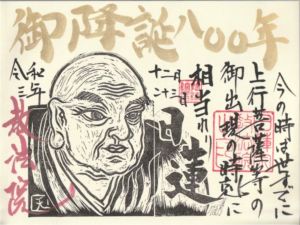 御降誕八〇〇年
今の時は世すでに
上行菩薩等の
御出現の時剋に
相当れり
十二月
二十三日
日蓮
令和
三年
教法院